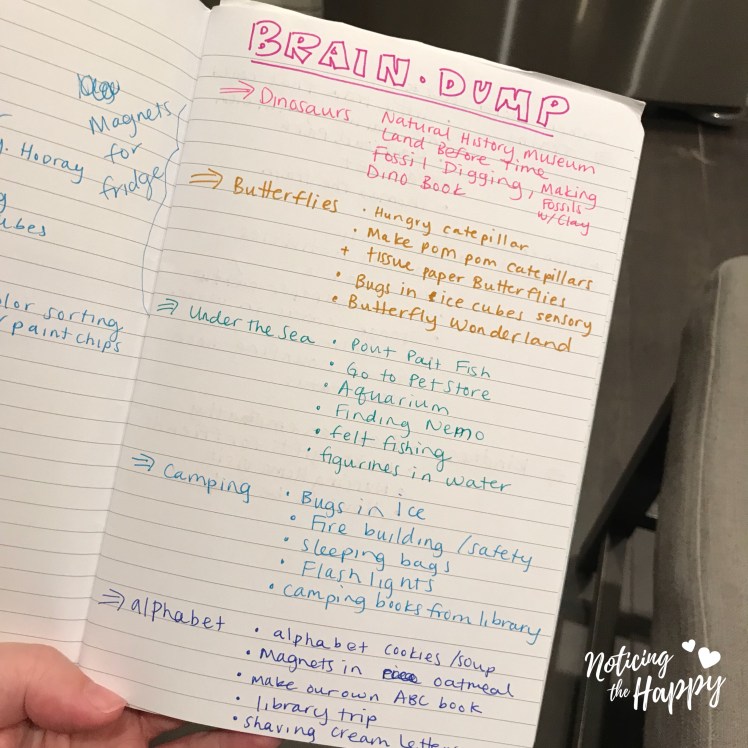 Magnets
for
fridge
Hooray
color sorting
paint chips
BRAIN · DUMP
⇒ Dinosaurs Natural History Museum
Land Before Time
Fossil Digging, Making
Fossils
w/Clay
Dino Book
⇒ Butterflies · Hungry catepillar
· Make pom pom catepillars
+ tissue paper Butterflies
· Bugs in ice cubes sensory
· Butterfly Wonderland
⇒ Under the Sea · Pout Fish
· Go to Pet Store
· Aquarium
· Finding Nemo
· felt fishing
· figurines in water
⇒ Camping · Bugs in ice
· Fire building /safety
· sleeping bags
· Flash lights
· camping books from library
⇒ alphabet · alphabet cookies/soup
· Magnets in oatmeal
· make our own ABC book
· library trip
· shaving cream
Noticing
the Happy